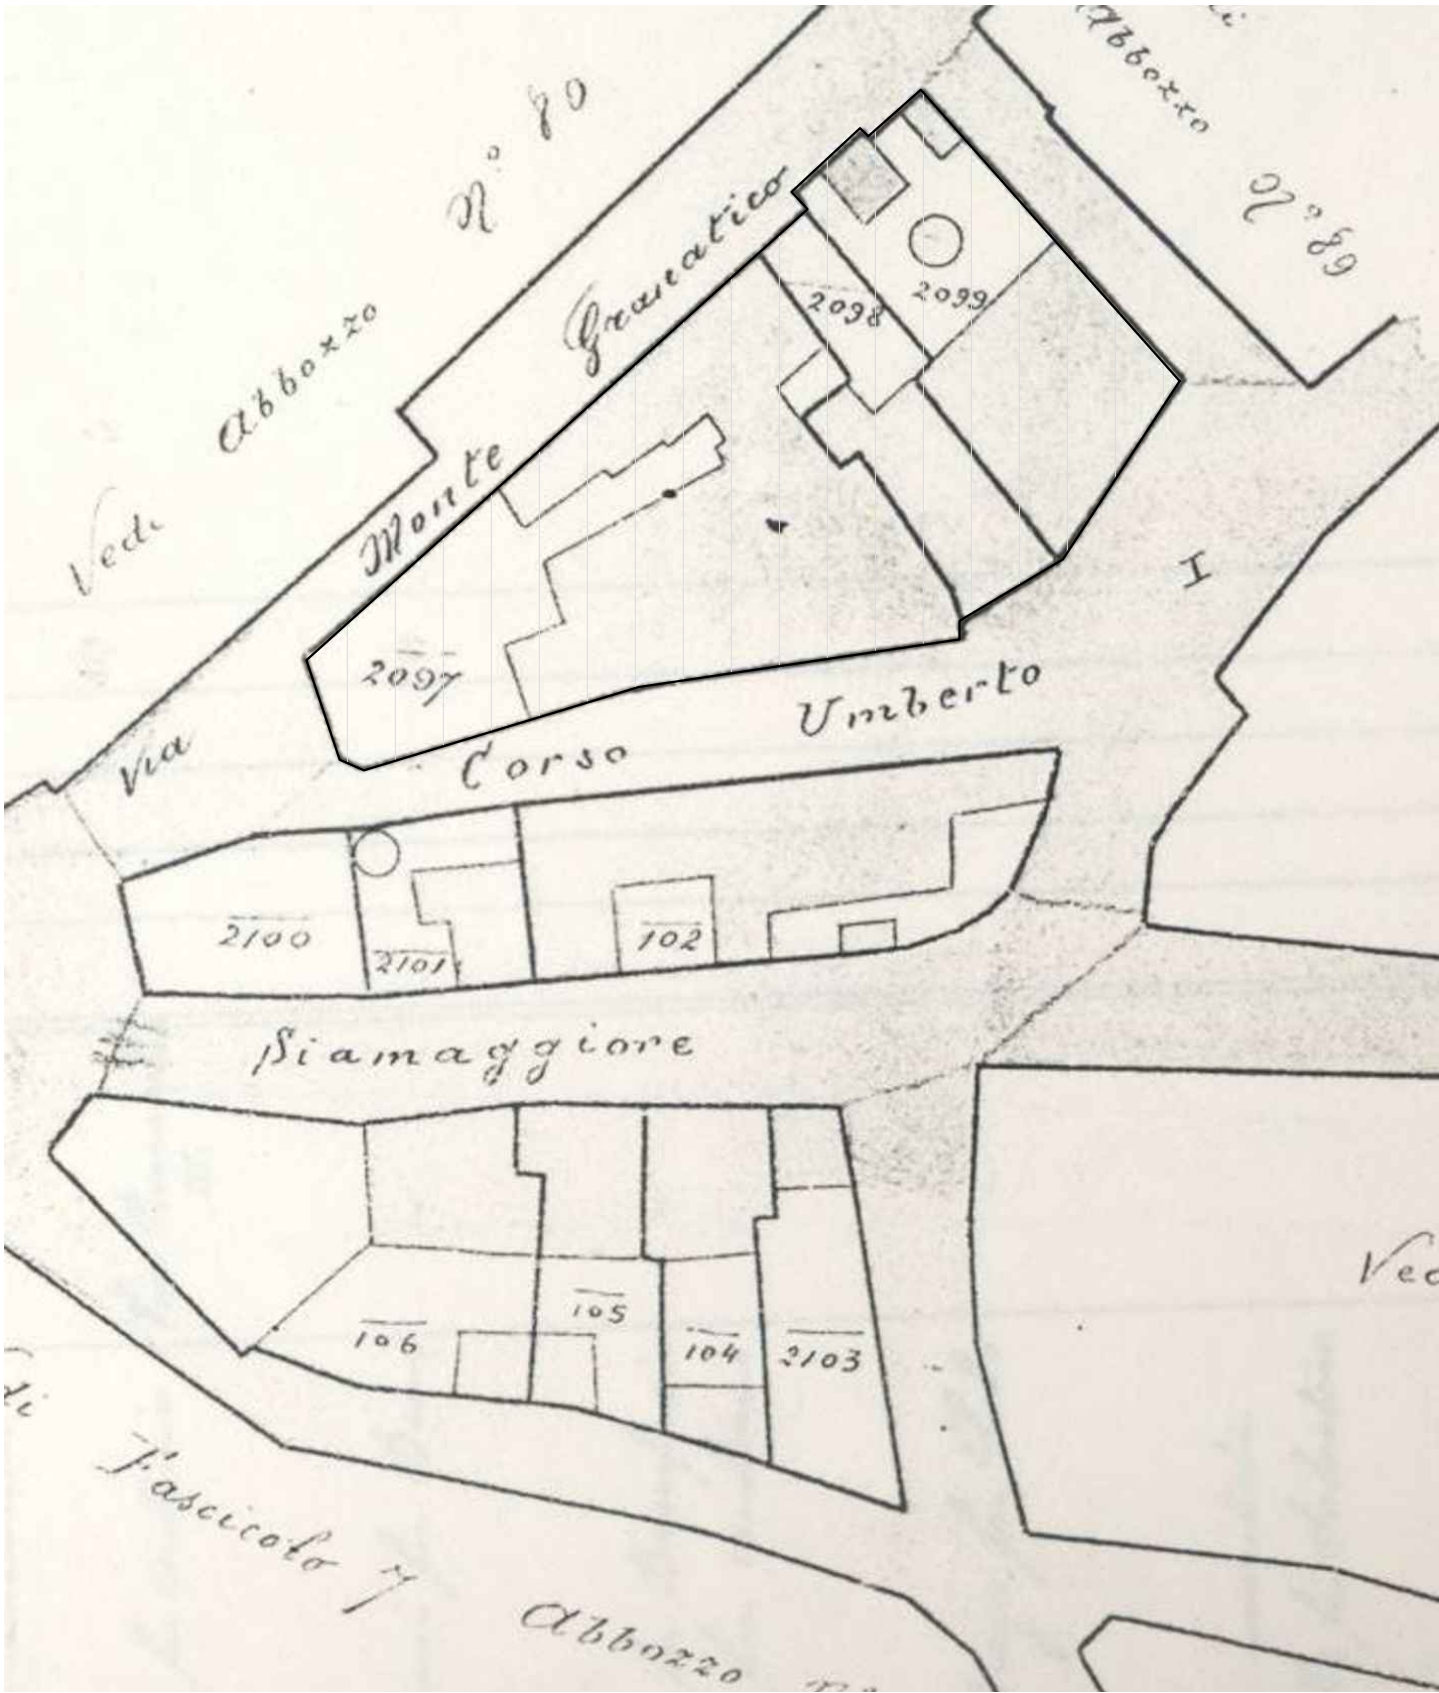 di
Abbozzo
N.° 89
Vedi Abbozzo N.° 80
Via Monte Granatico
2098
2099
2097
Corso Umberto I
2100
2101
102
Siamaggiore
106
105
104
2103
Ved
di
Fascicolo 7
Abbozzo